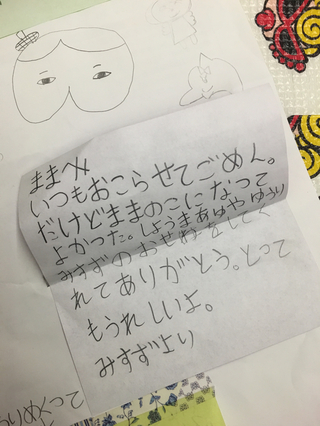 ままへ
いつもおこらせてごめん。
だけどままのこになって
よかった。しょうまあゆやゆうり
みすずのおせわをしてく
れてありがとう。とって
もうれしいよ。
みすずより
りめくって